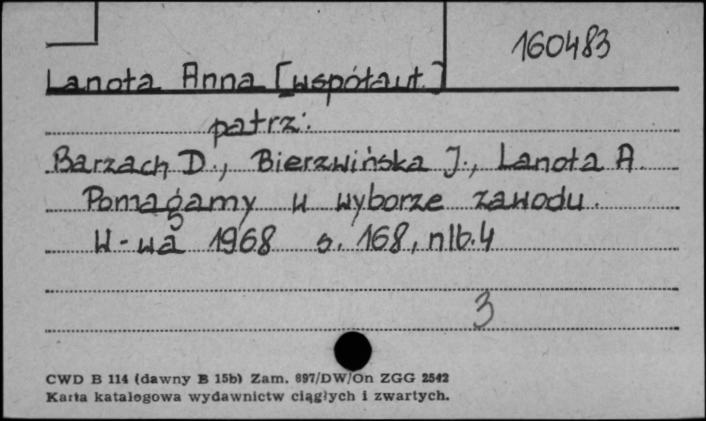 160483
Lanota Anna [współaut.]
patrz:
Barzach D., Bierzwińska J., Lanota A.
Pomagamy w wyborze zawodu.
W-wa 1968 s. 168, nlb. 4
3
CWD B 114 (dawny B 15b) Zam. 697/DW/On ZGG 2542
Karta katalogowa wydawnictw ciągłych i zwartych.